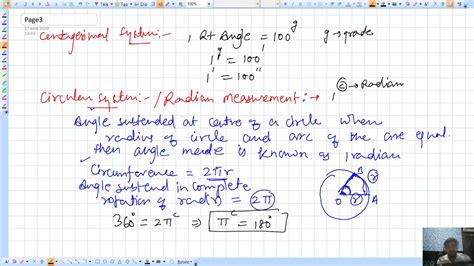 Page3
Centagesimal System:-
1 Rt Angle = 100g g → grades
1g = 100'
1' = 100"
Circular system:- / Radian measurement:→ 1 c → Radian
Angle subtended at centre of a circle when
radius of circle and arc of the are equal.
then angle made is known as 1 radian
Circumference = 2πr
Angle subtend in complete
rotation of rad(r) = 2π
360° = 2πc ⇒ πc = 180°
B
r
O r A